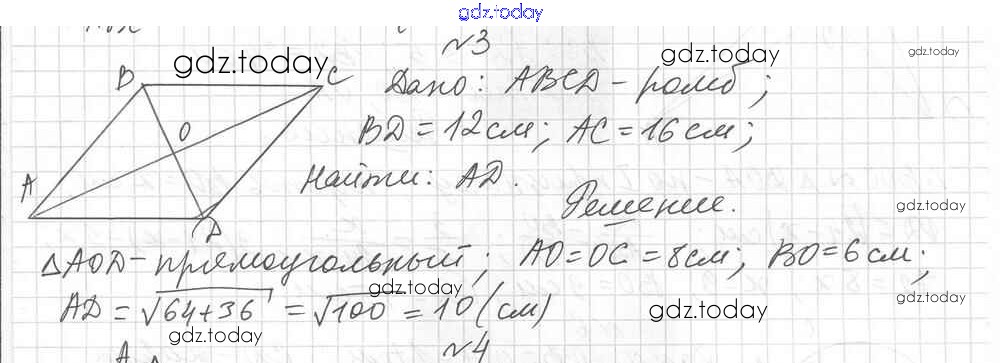 gdz.today
№3
gdz.today gdz.today gdz.today
B C Дано: ABCD - ромб;
O BD = 12 см; AC = 16 см;
A Найти: AD.
D Решение. gdz.today
△AOD - прямоугольный; AO = OC = 8 см; BO = 6 см;
gdz.today gdz.today
AD = √64+36 = √100 = 10 (см)
gdz.today gdz.today
A №4